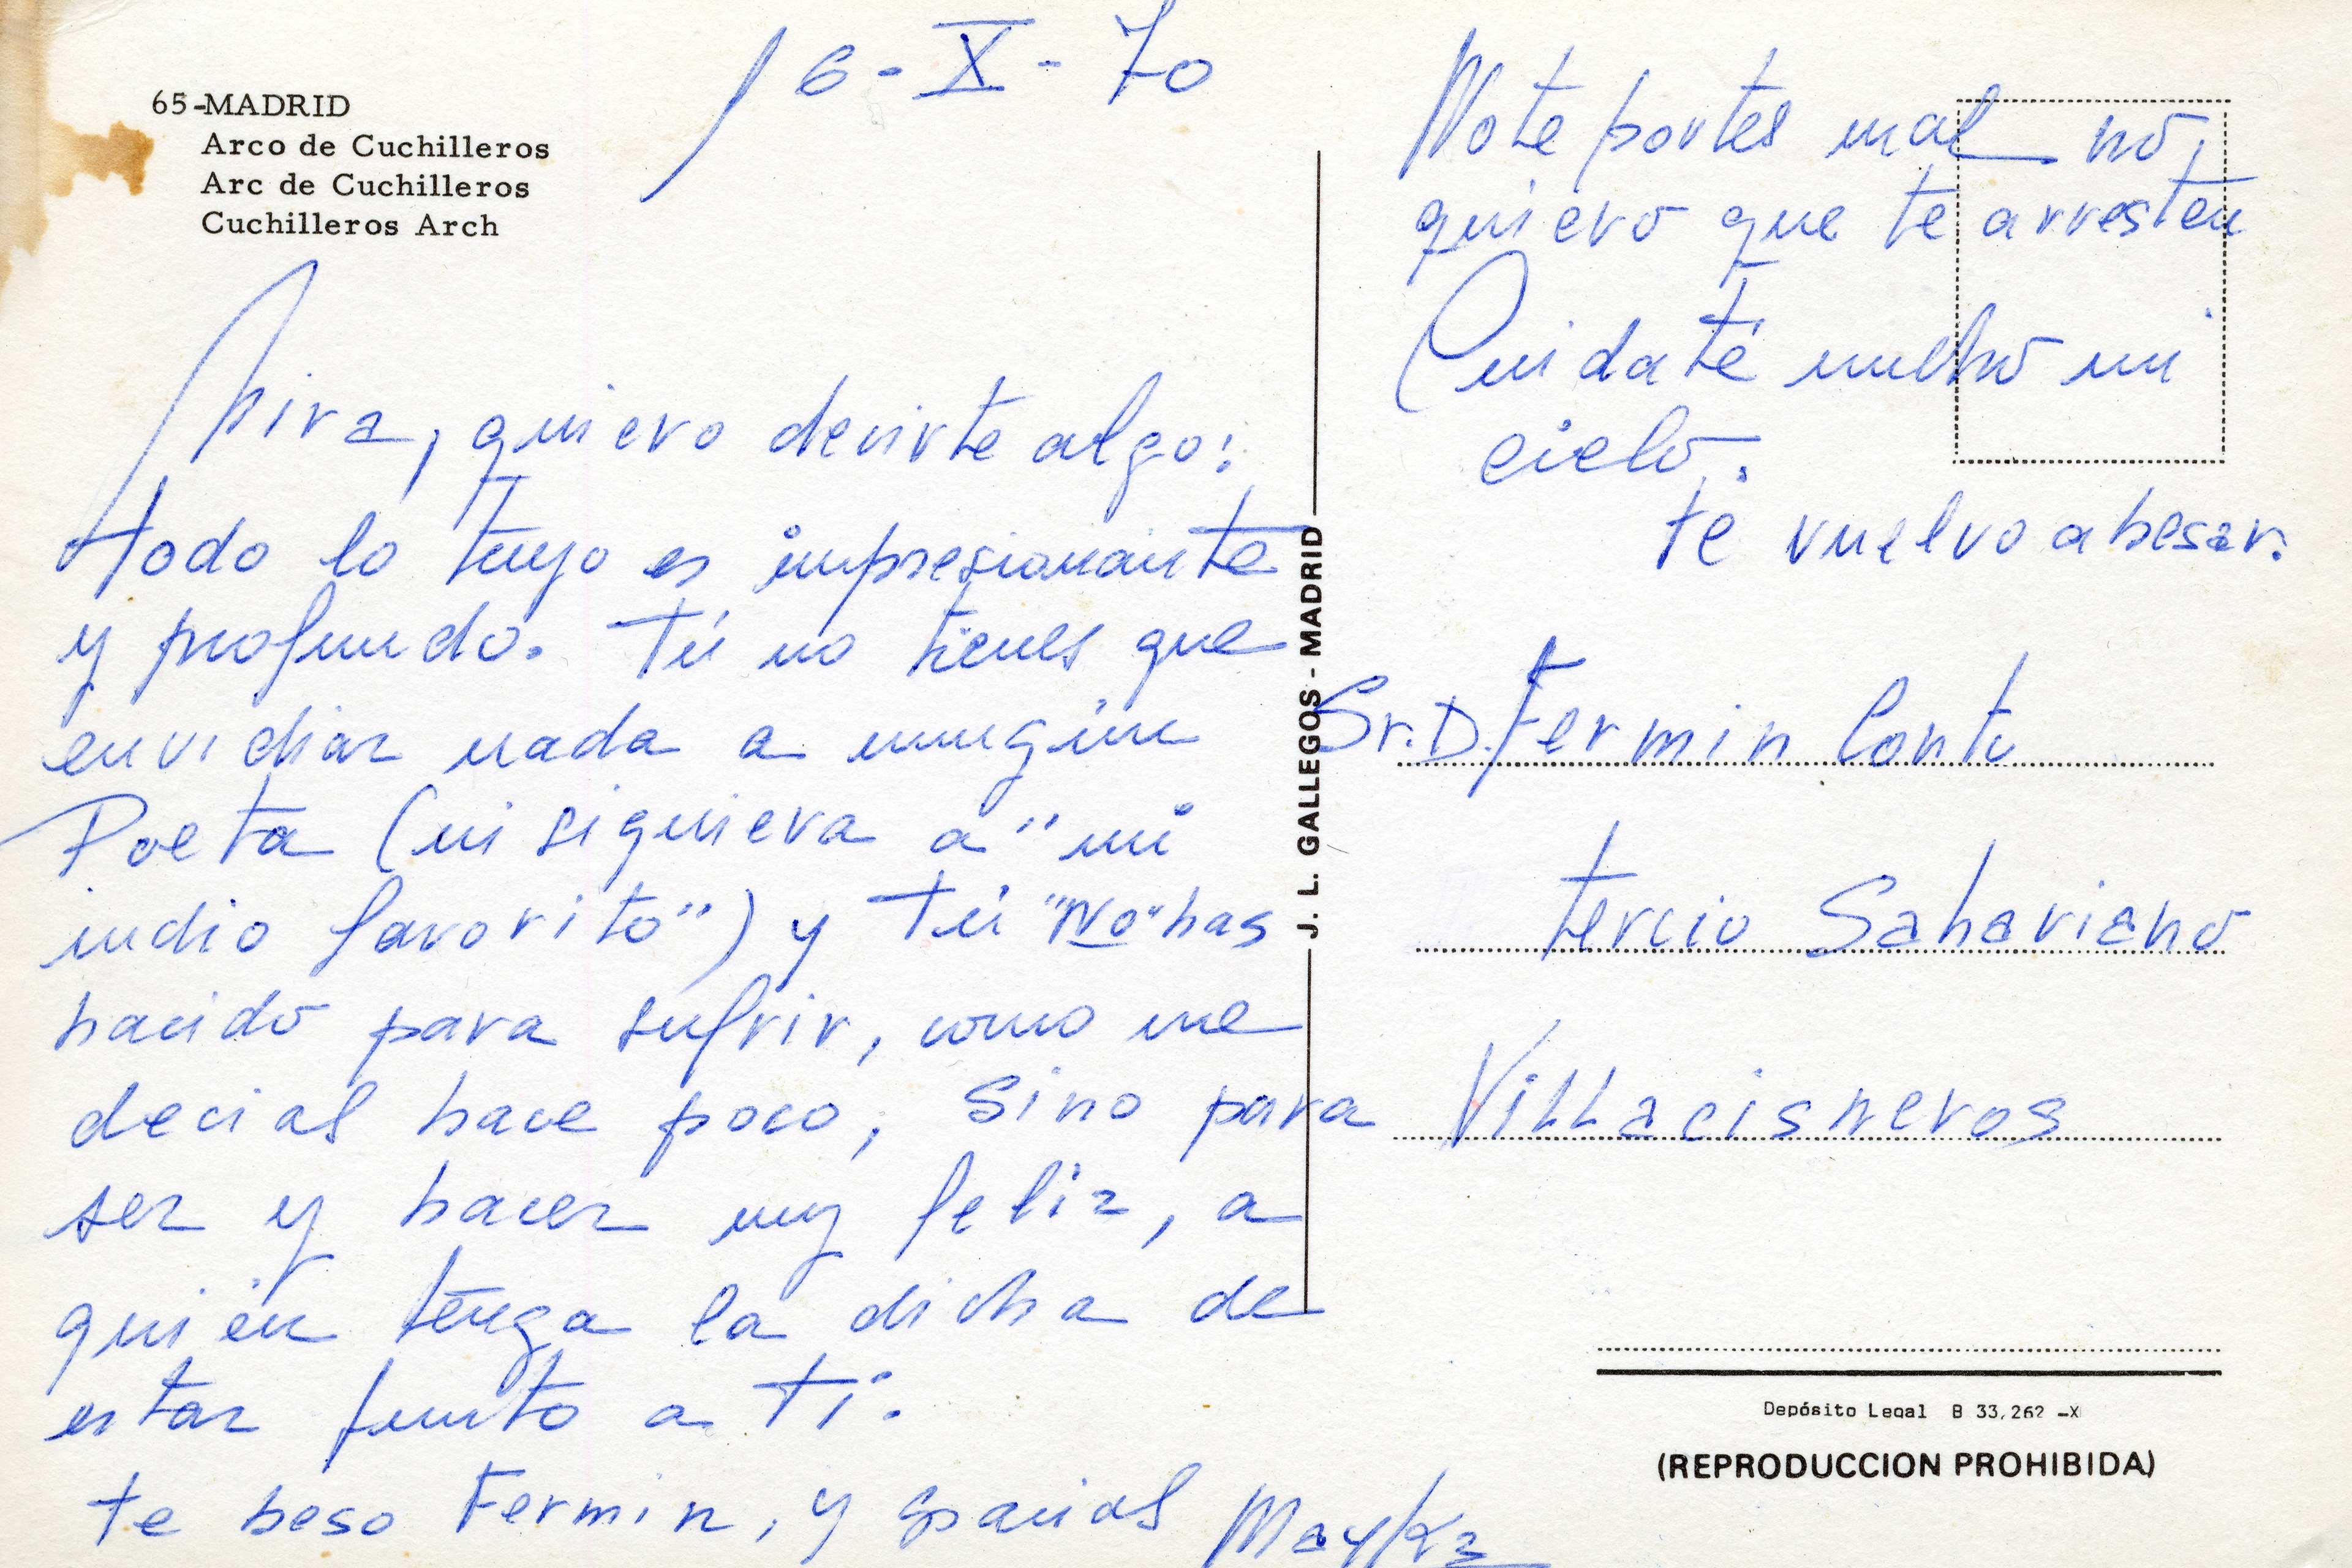 16-X-70
65-MADRID
Arco de Cuchilleros
Arc de Cuchilleros
Cuchilleros Arch
Mira, quiero decirte algo:
todo lo tuyo es impresionante
y profundo. Tú no tienes que
envidiar nada a ningún
Poeta (ni siquiera a "mi
indio favorito") y tú "No" has
nacido para sufrir, como me
decias hace poco, sino para
ser y hacer muy feliz, a
quién tenga la dicha de
estar junto a ti.
te beso Fermin, y gracias
J. L. GALLEGOS - MADRID
No te portes mal no,
quiero que te arresten
Cuidaté mucho mi
cielo.
te vuelvo a besar.
Sr. D. Fermin
Tercio Sahariano
Villacisneros
Depósito Legal B 33,262 -XI
(REPRODUCCION PROHIBIDA)